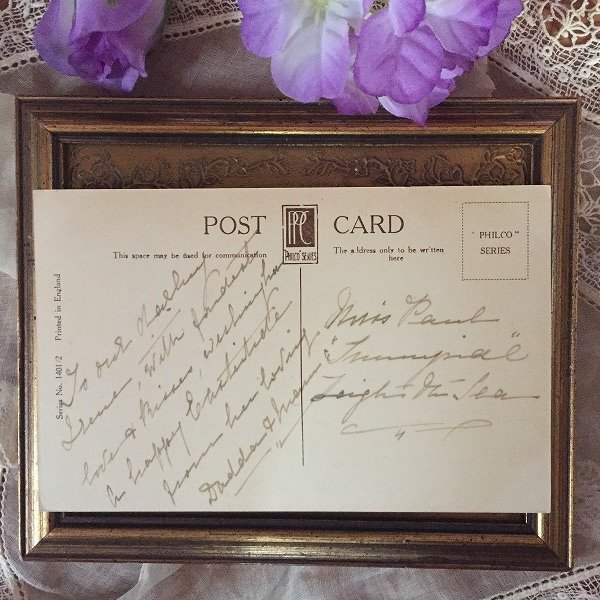 POST CARD
PPC
PHILCO SERIES
This space may be used for communication
The address only to be written
here
"PHILCO"
SERIES
Series No. 1401/2 Printed in England
To our
Irene, with fondest
love & Kisses, wishing her
A happy
from her loving
Dadda &
Miss Paul
"
Leigh-on-Sea